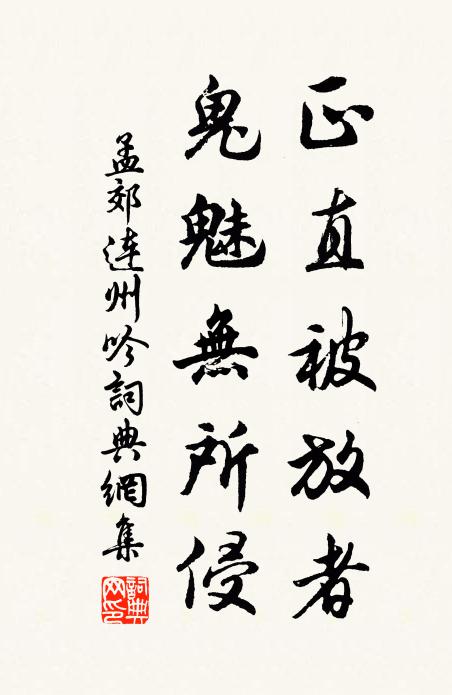 正直被放者
鬼魅無所侵
孟郊連州吟詞典網集
詞典網印